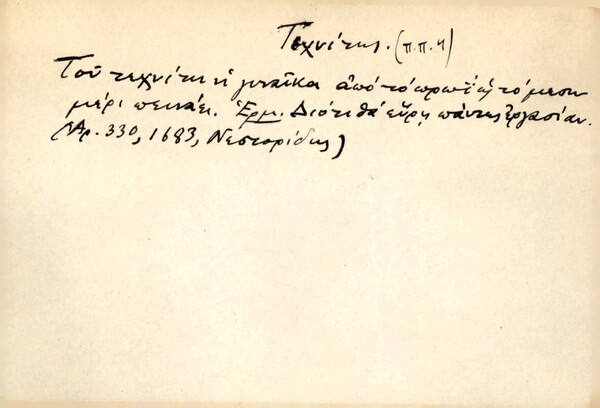 Τεχνίτης. (π.π. 4)
Τοῦ τεχνίτη ἡ γυναῖκα ἀπό τό πρωΐ ὥς τό μεση
μέρι πεινάει. Ἑρμ. Διότι θά εὕρῃ πάντως ἐργασίαν.
(Ἀρ. 330, 1683, Νεστορίδης)